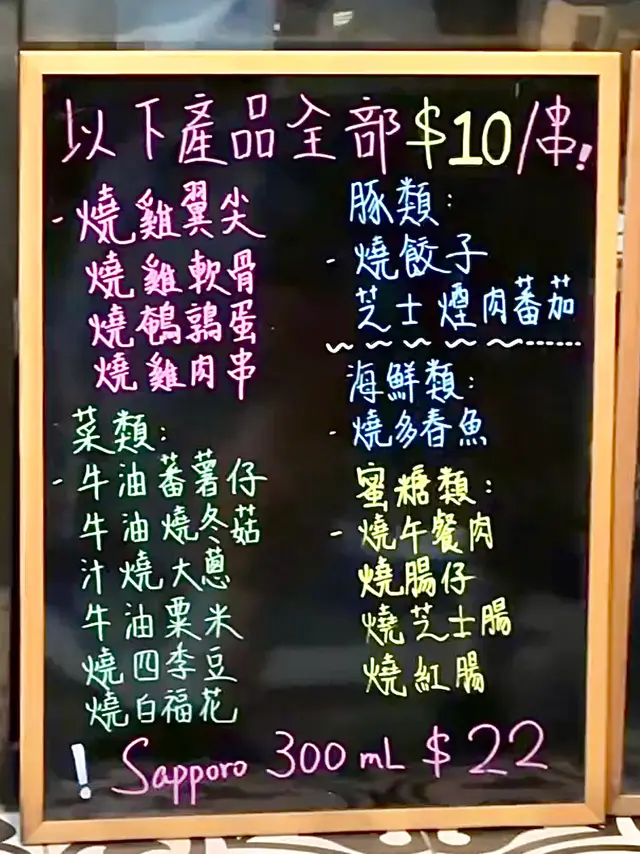 以下產品全部$10/串!
- 燒雞翼尖
燒雞軟骨
燒鵪鶉蛋
燒雞肉串
菜類:
- 牛油蕃薯仔
牛油燒冬菇
汁燒大蔥
牛油粟米
燒四季豆
燒白福花
豚類:
- 燒餃子
芝士煙肉蕃茄
海鮮類:
- 燒多春魚
蜜糖類:
- 燒午餐肉
燒腸仔
燒芝士腸
燒紅腸
! Sapporo 300mL $22